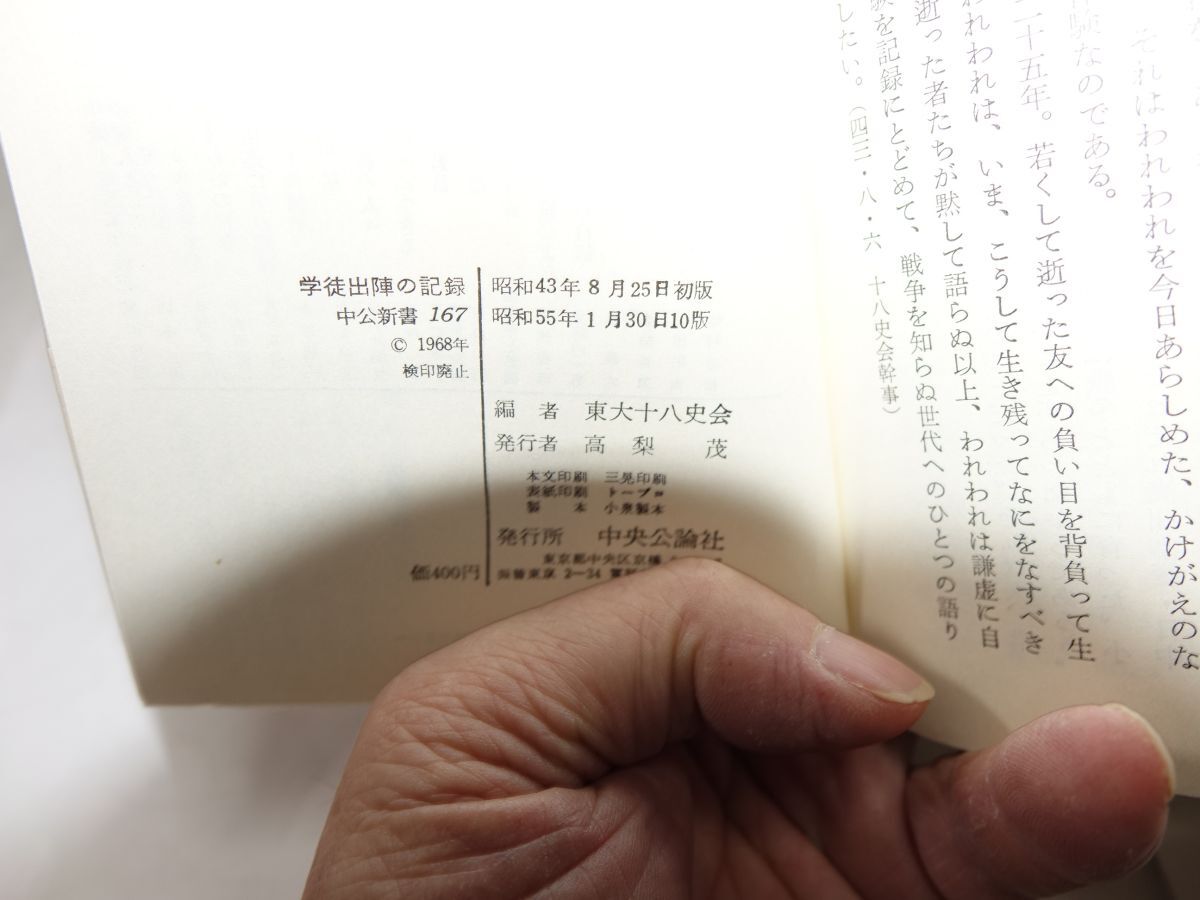 それはわれわれを今日あらしめた、かけがえのな
験なのである。
二十五年。若くして逝った友への負い目を背負って生
われわれは、いま、こうして生き残ってなにをなすべき
逝った者たちが黙して語らぬ以上、われわれは謙虚に自
を記録にとどめて、戦争を知らぬ世代へのひとつの語り
したい。(四三・八・六 十八史会幹事)
学徒出陣の記録
中公新書 167
© 1968年
検印廃止
昭和43年8月25日初版
昭和55年1月30日10版
編 者 東大十八史会
発行者 高梨 茂
本文印刷 三晃印刷
表紙印刷 トープロ
製 本 小泉製本
発行所 中央公論社
東京都中央区京橋
振替東京 2-34
価400円